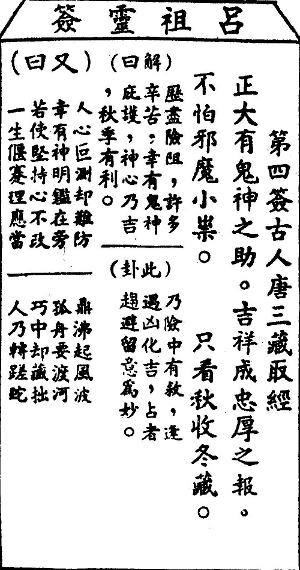 呂祖靈簽
第四簽古人唐三藏取經
正大有鬼神之助。吉祥成忠厚之報。
不怕邪魔小祟。 只看秋收冬藏。
(解曰)
歷盡險阻,許多
辛苦;幸有鬼神
庇護,神心乃吉
,秋季有利。
(此卦)
乃險中有救,逢
遇凶化吉,占者
趨避留意為妙。
(又曰)
人心叵測却難防
幸有神明鑑在旁
若使堅持心不改
一生偃蹇理應當
鼎沸起風波
孤舟要渡河
巧中却藏拙
人乃轉蹉跎